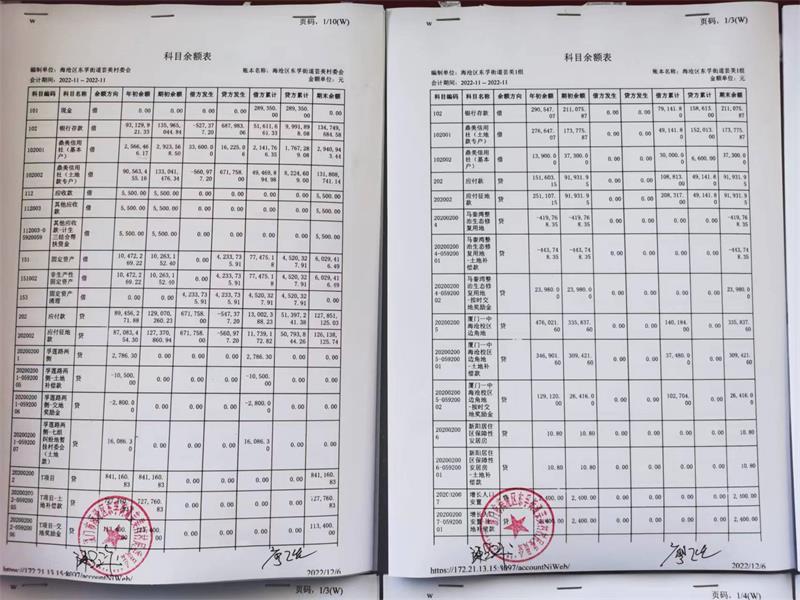 w
页码, 1/10(W)
科目余额表
编制单位: 海沧区东孚街道芸美村委会
账本名称: 海沧区东孚街道芸美村委会
会计期间: 2022-11 -- 2022-11
金额单位: 元
科目编码 科目名称 余额方向 年初余额 期初余额 借方发生 贷方发生 借方累计 贷方累计 期末余额
101 现金 借 0.00 0.00 0.00 0.00 289,350.00 289,350.00 0.00
102 银行存款 借 93,129,921.33 135,965,044.94 -527,377.20 687,983.06 51,611,661.33 9,991,898.08 134,749,684.58
102001 鼎美信用社(基本户) 借 2,566,466.17 2,923,568.50 33,600.00 16,225.06 2,141,766.35 1,767,289.08 2,940,943.44
102002 鼎美信用社(土地款专户) 借 90,563,455.16 133,041,476.34 -560,977.20 671,758.00 49,469,894.98 8,224,609.00 131,808,741.14
112 应收款 借 5,500.00 5,500.00 0.00 0.00 0.00 0.00 5,500.00
112003 其他应收款 借 5,500.00 5,500.00 0.00 0.00 0.00 0.00 5,500.00
112003-05920059 其他应收款-计生三结合帮扶资金 借 5,500.00 5,500.00 0.00 0.00 0.00 0.00 5,500.00
151 固定资产 借 10,472,269.22 10,263,152.40 0.00 4,233,735.91 77,475.18 4,520,327.91 6,029,416.49
151002 非生产性固定资产 借 10,472,269.22 10,263,152.40 0.00 4,233,735.91 77,475.18 4,520,327.91 6,029,416.49
153 固定资产清理 借 0.00 0.00 4,233,735.91 4,233,735.91 4,520,327.91 4,520,327.91 0.00
202 应付款 贷 89,456,271.88 129,070,260.23 671,758.00 -547,377.20 13,002,388.23 51,397,241.38 127,851,125.03
202002 应付征地款 贷 87,083,454.30 127,370,860.94 671,758.00 -560,977.20 11,739,172.82 50,793,844.26 126,138,125.74
202002001 孚莲路两侧 贷 2,786.30 0.00 0.00 0.00 2,786.30 0.00 0.00
202002001-05920005 孚莲路两侧-土地补偿款 贷 -10,500.00 0.00 0.00 0.00 -10,500.00 0.00 0.00
202002001-05920006 孚莲路两侧-交地奖励金 贷 -2,800.00 0.00 0.00 0.00 -2,800.00 0.00 0.00
202002001-05920007 孚莲路两侧-七组纠纷地暂挂村委会(土地款) 贷 16,086.30 0.00 0.00 0.00 16,086.30 0.00 0.00
202002002 T项目 贷 841,160.53 841,160.53 0.00 0.00 0.00 0.00 841,160.53
202002002-05920005 T项目-土地补偿款 727,760.53 0.00 0.00 0.00 0.00 727,760.53
202002002-05920006 T项目-交地奖励金 贷 113,400.00 0.00 0.00 0.00 0.00 113,400.00
https://172.21.13.15:8897/accountNiWeb/
2022/12/6
w
页码, 1/3(W)
科目余额表
编制单位: 海沧区东孚街道芸美1组
账本名称: 海沧区东孚街道芸美1组
会计期间: 2022-11 -- 2022-11
金额单位: 元
科目编码 科目名称 余额方向 年初余额 期初余额 借方发生 贷方发生 借方累计 贷方累计 期末余额
102 银行存款 借 290,547.07 211,075.87 0.00 0.00 79,141.80 158,613.00 211,075.87
102001 鼎美信用社(土地款专户) 借 276,647.07 173,775.87 0.00 0.00 49,141.80 152,013.00 173,775.87
102002 鼎美信用社(基本户) 借 13,900.00 37,300.00 0.00 0.00 30,000.00 6,600.00 37,300.00
202 应付款 贷 151,603.15 91,931.95 0.00 0.00 108,813.00 49,141.80 91,931.95
202002 应付征地款 贷 251,107.15 91,931.95 0.00 0.00 208,317.00 49,141.80 91,931.95
202002004 马銮湾整治生态修复用地 贷 -419,768.35 -419,768.35 0.00 0.00 0.00 0.00 -419,768.35
202002004-05920005 马銮湾整治生态修复用地-土地补偿款 贷 -443,748.35 -443,748.35 0.00 0.00 0.00 0.00 -443,748.35
202002004-05920006 马銮湾整治生态修复用地-按时交地奖励金 贷 23,980.00 23,980.00 0.00 0.00 0.00 0.00 23,980.00
202002005 厦门一中海沧校区边角地 贷 476,021.60 335,837.60 0.00 0.00 140,184.00 0.00 335,837.60
202002005-05920005 厦门一中海沧校区边角地-土地补偿款 贷 346,901.60 309,421.60 0.00 0.00 37,480.00 0.00 309,421.60
202002005-05920006 厦门一中海沧校区边角地-按时交地奖励金 贷 129,120.00 26,416.00 0.00 0.00 102,704.00 0.00 26,416.00
202002006 新阳居住区保障性安居房 贷 10.80 10.80 0.00 0.00 0.00 0.00 10.80
202002006-05920005 新阳居住区保障性安居房-土地补偿款 贷 10.80 10.80 0.00 0.00 0.00 0.00 10.80
202002007 增长人口安置 2,400.00 2,400.00 0.00 0.00 0.00 0.00 2,400.00
202002007-05920005 增长人口安置-土地补偿款 2,400.00 2,400.00 0.00 0.00 0.00 0.00 2,400.00
https://172.21.13.15:8897/accountNiWeb/
2022/12/6
w
页码, 1/3(W)
w
页码, 1/4(W)